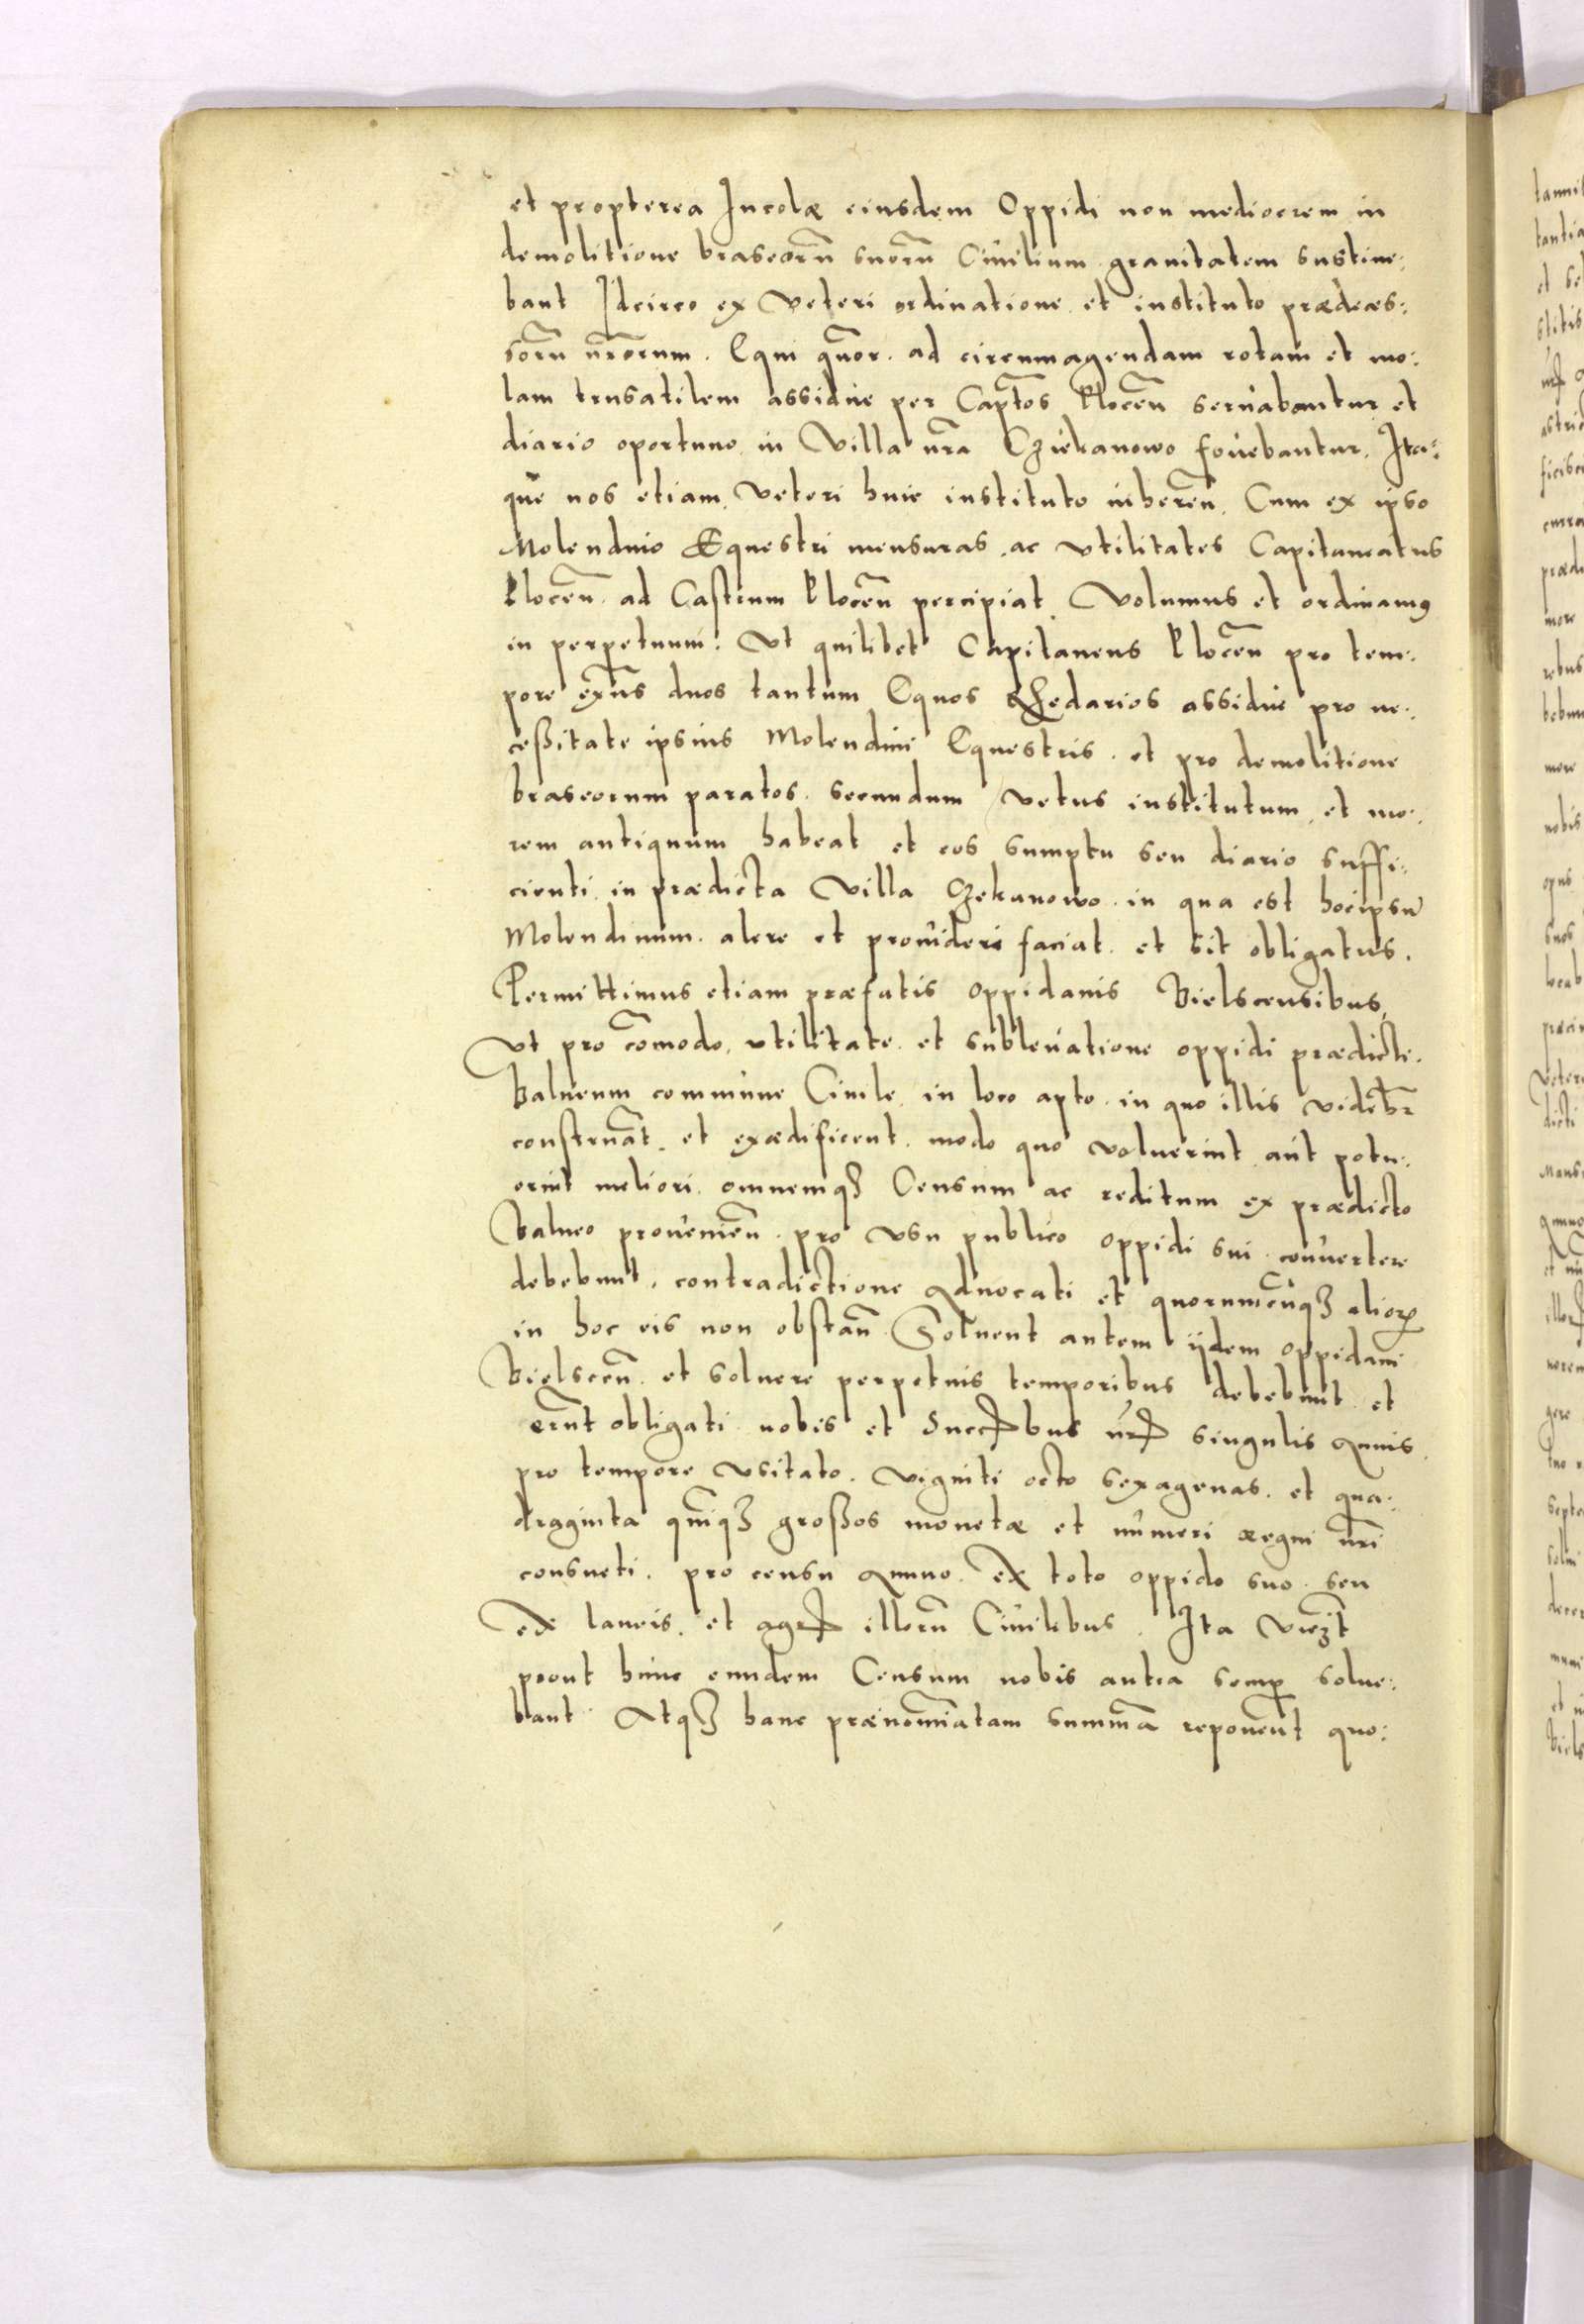 et propterea Incolæ eiusdem Oppidi non mediocrem in
demolitione braseorũ suorũ Ciuilium grauitatem sustine:
bant Idcirco ex veteri ordinatione et instituto prædeces:
sorũ nr̃orum. Equi quõr. ad circumagendam rotam et mo:
lam trusatilem assidue per Capt̃os Plocen̄ seruabantur et
diario oportuno in villa nr̃a Cziekanowo fouebantur. Ita:
que nos etiam veteri huic instituto inheren̄. Cum ex ipso
Molendino Equestri mensuras ac vtilitates Capitaneatus
Plocen̄ ad Castrum Plocen̄ percipiat volumus et ordinamꝰ
in perpetuum. Vt quilibet Capitaneus Plocen̄ pro tem:
pore exñs duos tantum Equos Rhedarios assidue pro ne:
ceßitate ipsius Molendini Equestris. et pro demolitione
braseorum paratos. secundum vetus institutum et mo:
rem antiquum habeat et eos sumptu seu diario suffi:
cienti in prædicta villa Czekanowo in qua est hocipsũ
Molendinum. alere et prouideri faciat. et sit obligatus.
Permittimus etiam præfatis oppidanis Bielscensibus,
Vt pro cõmodo, vtilitate et subleuatione oppidi prædicti.
balneum commune Ciuile in loco apto in quo illis videbr̃
construãt. et exædificent modo quo voluerint aut potu:
erint meliori omnemqȝ Censum ac reditum ex prædicto
balneo prouenien̄. pro vsu publico oppidi sui conuertere
debebunt, contradictione Aduocati et quorumcũqȝ alioꝝ
in hoc eis non obstan̄. Soluent autem ijdem oppidani
Bielscen̄. et soluere perpetuis temporibus debebunt et
erũt obligati nobis et Succꝝbus nr̃ꝝ singulis Annis
pro tempore vsitato. viginti octo sexagenas. et qua:
draginta quĩqȝ großos monetæ et numeri Regni nr̃i
consueti. pro censu Annuo. ex toto oppido suo seu
ex laneis. et agrꝝ illorũ Ciuilibus. Ita viczt̃
prout hunc eundem Censum nobis antea semꝑ solue:
bant. Atqȝ hanc prænomĩatam summã reponent quo: